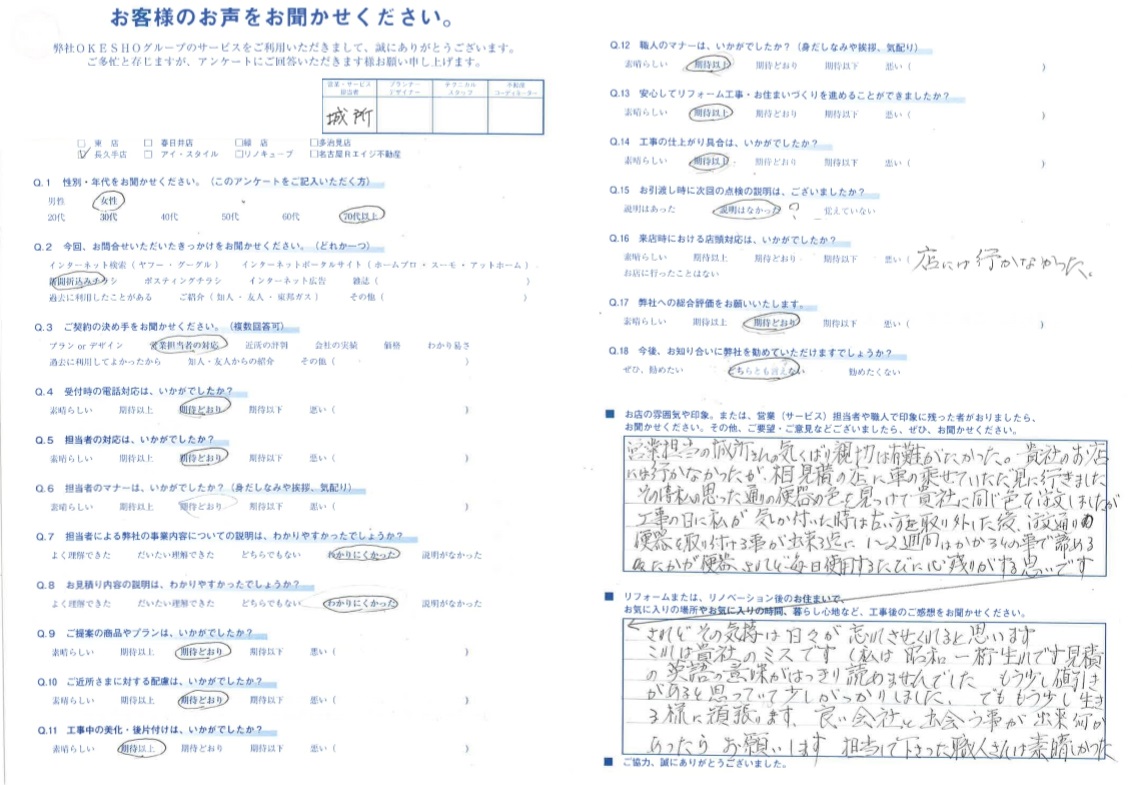 お客様のお声をお聞かせください。
弊社OKESHOグループのサービスをご利用いただきまして、誠にありがとうございます。
ご多忙と存じますが、アンケートにご回答いただきます様お願い申し上げます。
営業・サービス担当者 プランナーデザイナー テクニカルスタッフ 不動産コーディネーター
城所
□ 東 店 □ 春日井店 □緑 店 □多治見店
☑ 長久手店 □ アイ・スタイル □リノキューブ □名古屋Rエイジ不動産
Q.1 性別・年代をお聞かせください。(このアンケートをご記入いただく方)
男性 女性
20代 30代 40代 50代 60代 70代以上
Q.2 今回、お問合せいただいたきっかけをお聞かせください。(どれか一つ)
インターネット検索(ヤフー・グーグル) インターネットポータルサイト(ホームプロ・スーモ・アットホーム)
新聞折込みチラシ ポスティングチラシ インターネット広告 雑誌( )
過去に利用したことがある ご紹介(知人・友人・東邦ガス) その他( )
Q.3 ご契約の決め手をお聞かせください。(複数回答可)
プラン or デザイン 営業担当者の対応 近所の評判 会社の実績 価格 わかり易さ
過去に利用してよかったから 知人・友人からの紹介 その他( )
Q.4 受付時の電話対応は、いかがでしたか?
素晴らしい 期待以上 期待どおり 期待以下 悪い( )
Q.5 担当者の対応は、いかがでしたか?
素晴らしい 期待以上 期待どおり 期待以下 悪い( )
Q.6 担当者のマナーは、いかがでしたか?(身だしなみや挨拶、気配り)
素晴らしい 期待以上 期待どおり 期待以下 悪い( )
Q.7 担当者による弊社の事業内容についての説明は、わかりやすかったでしょうか?
よく理解できた だいたい理解できた どちらでもない わかりにくかった 説明がなかった
Q.8 お見積り内容の説明は、わかりやすかったでしょうか?
よく理解できた だいたい理解できた どちらでもない わかりにくかった 説明がなかった
Q.9 ご提案の商品やプランは、いかがでしたか?
素晴らしい 期待以上 期待どおり 期待以下 悪い( )
Q.10 ご近所さまに対する配慮は、いかがでしたか?
素晴らしい 期待以上 期待どおり 期待以下 悪い( )
Q.11 工事中の美化・後片付けは、いかがでしたか?
素晴らしい 期待以上 期待どおり 期待以下 悪い( )
Q.12 職人のマナーは、いかがでしたか?(身だしなみや挨拶、気配り)
素晴らしい 期待以上 期待どおり 期待以下 悪い( )
Q.13 安心してリフォーム工事・お住まいづくりを進めることができましたか?
素晴らしい 期待以上 期待どおり 期待以下 悪い( )
Q.14 工事の仕上がり具合は、いかがでしたか?
素晴らしい 期待以上 期待どおり 期待以下 悪い( )
Q.15 お引渡し時に次回の点検の説明は、ございましたか?
説明はあった 説明はなかった ? 覚えていない
Q.16 来店時における店頭対応は、いかがでしたか?
素晴らしい 期待以上 期待どおり 期待以下 悪い( 店には行かなかった。
お店に行ったことはない
Q.17 弊社への総合評価をお願いいたします。
素晴らしい 期待以上 期待どおり 期待以下 悪い( )
Q.18 今後、お知り合いに弊社を勧めていただけますでしょうか?
ぜひ、勧めたい どちらとも言えない 勧めたくない
■ お店の雰囲気や印象。または、営業(サービス)担当者や職人で印象に残った者がおりましたら、
お聞かせください。その他、ご要望・ご意見などございましたら、ぜひ、お聞かせください。
営業担当の城所さんの気くばり親切は有難がたかった。貴社のお店
には行かなかったが、相見積の店に車の乗せていただ見に行きました
その時私の思った通りの便器の色を見つけて貴社に同じ色を注文しましたが
工事の日に私が気が付いた時は古い方を取り外した後、注文通りの
便器を取り付ける事が出来る迄に1~2週間はかかるとの事で諦める
たかが便器されど毎日使用するたびに心残りがする思いです
■ リフォームまたは、リノベーション後のお住まいで、
お気に入りの場所やお気に入りの時間、暮らし心地など、工事後のご感想をお聞かせください。
されどその気持は日々が忘れさせてくれると思います
ミルは貴社のミスです(私は昭和一桁生れです見積
の英語の意味がはっきり読めませんでした もう少し値引き
があると思っていて少しがっかりしました、でももう少し生き
る様に頑張ります、良い会社と出会う事が出来何か
あったらお願いします 担当して下さった職人さんは素晴しかった
■ ご協力、誠にありがとうございました。